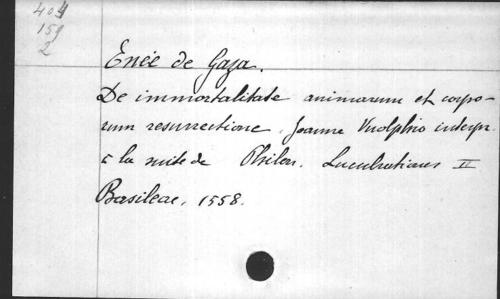 404
159
2
Enée de Gaza.
De immortalitate animarum et corpo-
rum resurrectione. Joanne Vuolphio interpr.
à la suite de Philon. Lucubrationes II
Basileae, 1558.